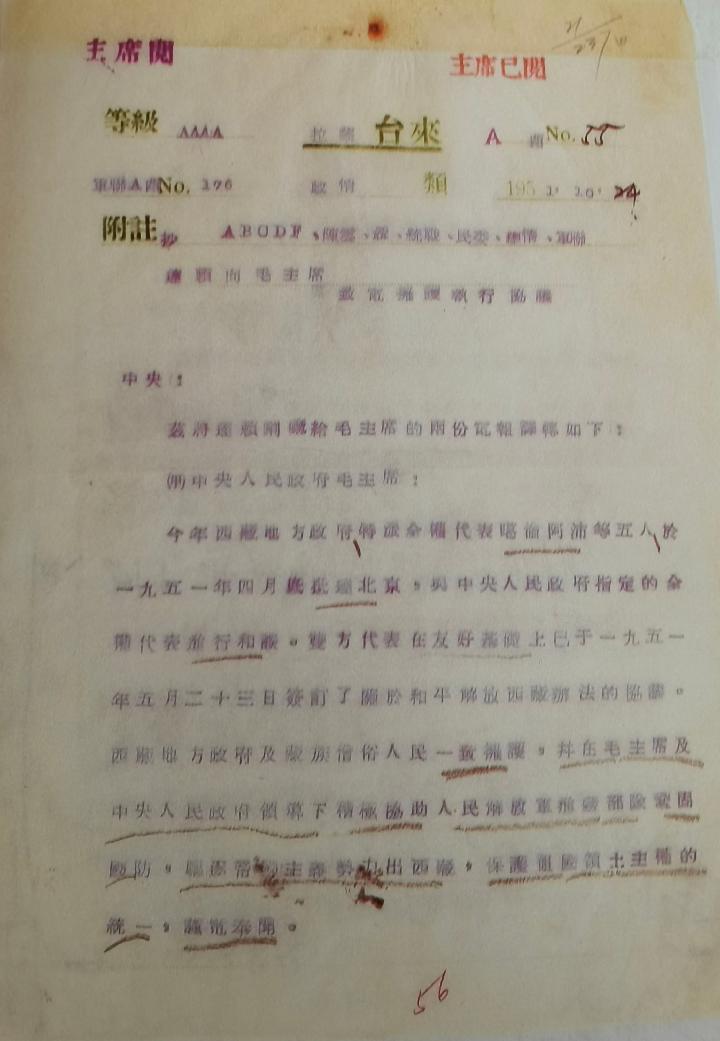 主席閱
主席已閱
21/23/VI
等級 AAAA 拉薩 台來 A 西 No. 55
軍聯A西No. 276 政情 類 195 1. 10. 24
附註 抄 ABCDF、陳雲、統戰、民委、總情、軍聯
達賴向毛主席
致電擁護執行協議
中央：
茲將達賴喇嘛給毛主席的兩份電報譯轉如下：
中央人民政府毛主席：
今年西藏地方政府特派全權代表噶倫阿沛等五人於
一九五一年四月底抵達北京，與中央人民政府指定的全
權代表進行和談。雙方代表在友好基礎上已于一九五一
年五月二十三日簽訂了關於和平解放西藏辦法的協議。
西藏地方政府及藏族僧俗人民一致擁護，并在毛主席及
中央人民政府領導下積極協助人民解放軍進藏部隊鞏固
國防，驅逐帝國主義勢力出西藏，保護祖國領土主權的
統一，謹電奉聞。
56